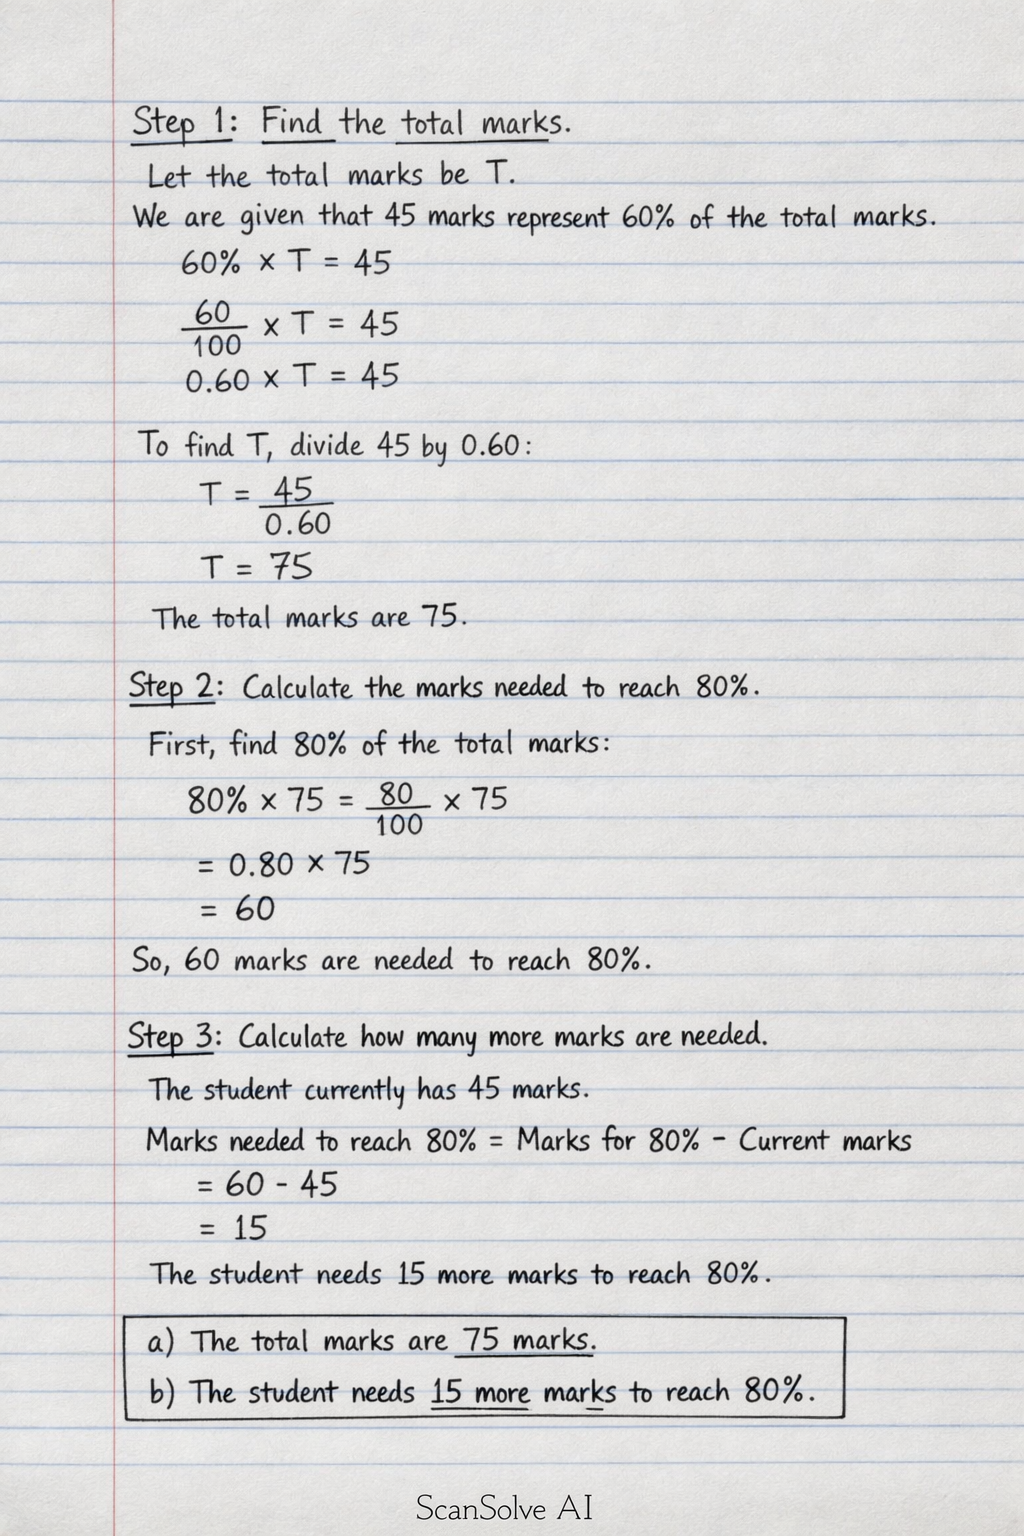 Step 1: Find the total marks.
Let the total marks be T.
We are given that 45 marks represent 60% of the total marks.
60% × T = 45
60/100 × T = 45
0.60 × T = 45
To find T, divide 45 by 0.60:
T = 45/0.60
T = 75
The total marks are 75.
Step 2: Calculate the marks needed to reach 80%.
First, find 80% of the total marks:
80% × 75 = 80/100 × 75
= 0.80 × 75
= 60
So, 60 marks are needed to reach 80%.
Step 3: Calculate how many more marks are needed.
The student currently has 45 marks.
Marks needed to reach 80% = Marks for 80% - Current marks
= 60 - 45
= 15
The student needs 15 more marks to reach 80%.
a) The total marks are 75 marks.
b) The student needs 15 more marks to reach 80%.
ScanSolve AI